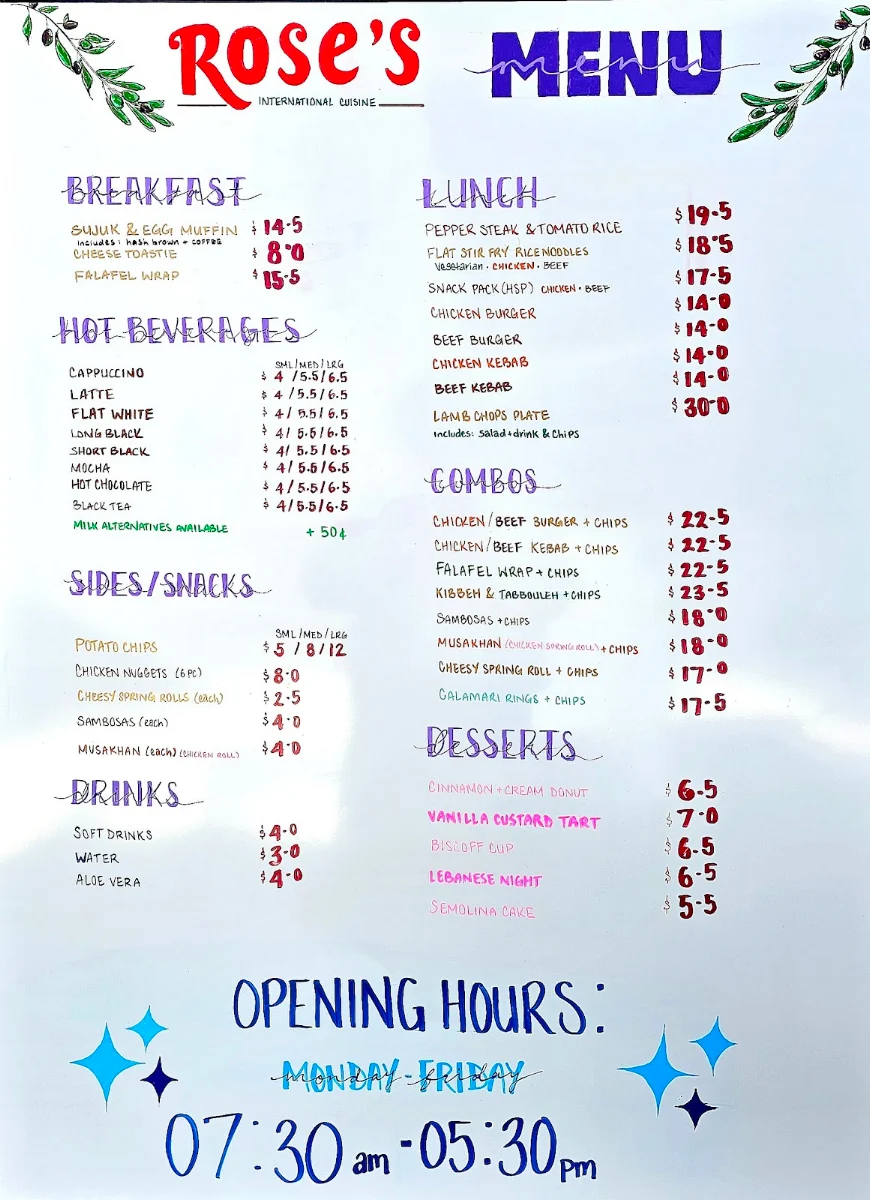 ROSE'S
INTERNATIONAL CUISINE
MENU
menu
BREAKFAST
SUJUK & EGG MUFFIN $14.5
includes: hash brown + COFFEE
CHEESE TOASTIE $8.0
FALAFEL WRAP $15.5
HOT BEVERAGES
SML/MED/LRG
CAPPUCCINO $4/5.5/6.5
LATTE $4/5.5/6.5
FLAT WHITE $4/5.5/6.5
LONG BLACK $4/5.5/6.5
SHORT BLACK $4/5.5/6.5
MOCHA $4/5.5/6.5
HOT CHOCOLATE $4/5.5/6.5
BLACK TEA $4/5.5/6.5
MILK ALTERNATIVES AVAILABLE + 50¢
SIDES/SNACKS
SML/MED/LRG
POTATO CHIPS $5/8/12
CHICKEN NUGGETS (6PC) $8.0
CHEESY SPRING ROLLS (each) $2.5
SAMBOSAS (each) $4.0
MUSAKHAN (each) (CHICKEN ROLL) $4.0
DRINKS
SOFT DRINKS $4.0
WATER $3.0
ALOE VERA $4.0
LUNCH
PEPPER STEAK & TOMATO RICE $19.5
FLAT STIR FRY RICE NOODLES $18.5
Vegetarian · CHICKEN · BEEF
SNACK PACK (HSP) CHICKEN · BEEF $17.5
CHICKEN BURGER $14.0
BEEF BURGER $14.0
CHICKEN KEBAB $14.0
BEEF KEBAB $14.0
LAMB CHOPS PLATE $30.0
includes: salad + drink & chips
COMBOS
CHICKEN/BEEF BURGER + CHIPS $22.5
CHICKEN/BEEF KEBAB + CHIPS $22.5
FALAFEL WRAP + CHIPS $22.5
KIBBEH & TABBOULEH + CHIPS $23.5
SAMBOSAS + CHIPS $18.0
MUSAKHAN (CHICKEN SPRING ROLL) + CHIPS $18.0
CHEESY SPRING ROLL + CHIPS $17.0
CALAMARI RINGS + CHIPS $17.5
DESSERTS
CINNAMON + CREAM DONUT $6.5
VANILLA CUSTARD TART $7.0
BISCOFF CUP $6.5
LEBANESE NIGHT $6.5
SEMOLINA CAKE $5.5
OPENING HOURS:
MONDAY - FRIDAY
07:30 am - 05:30 pm